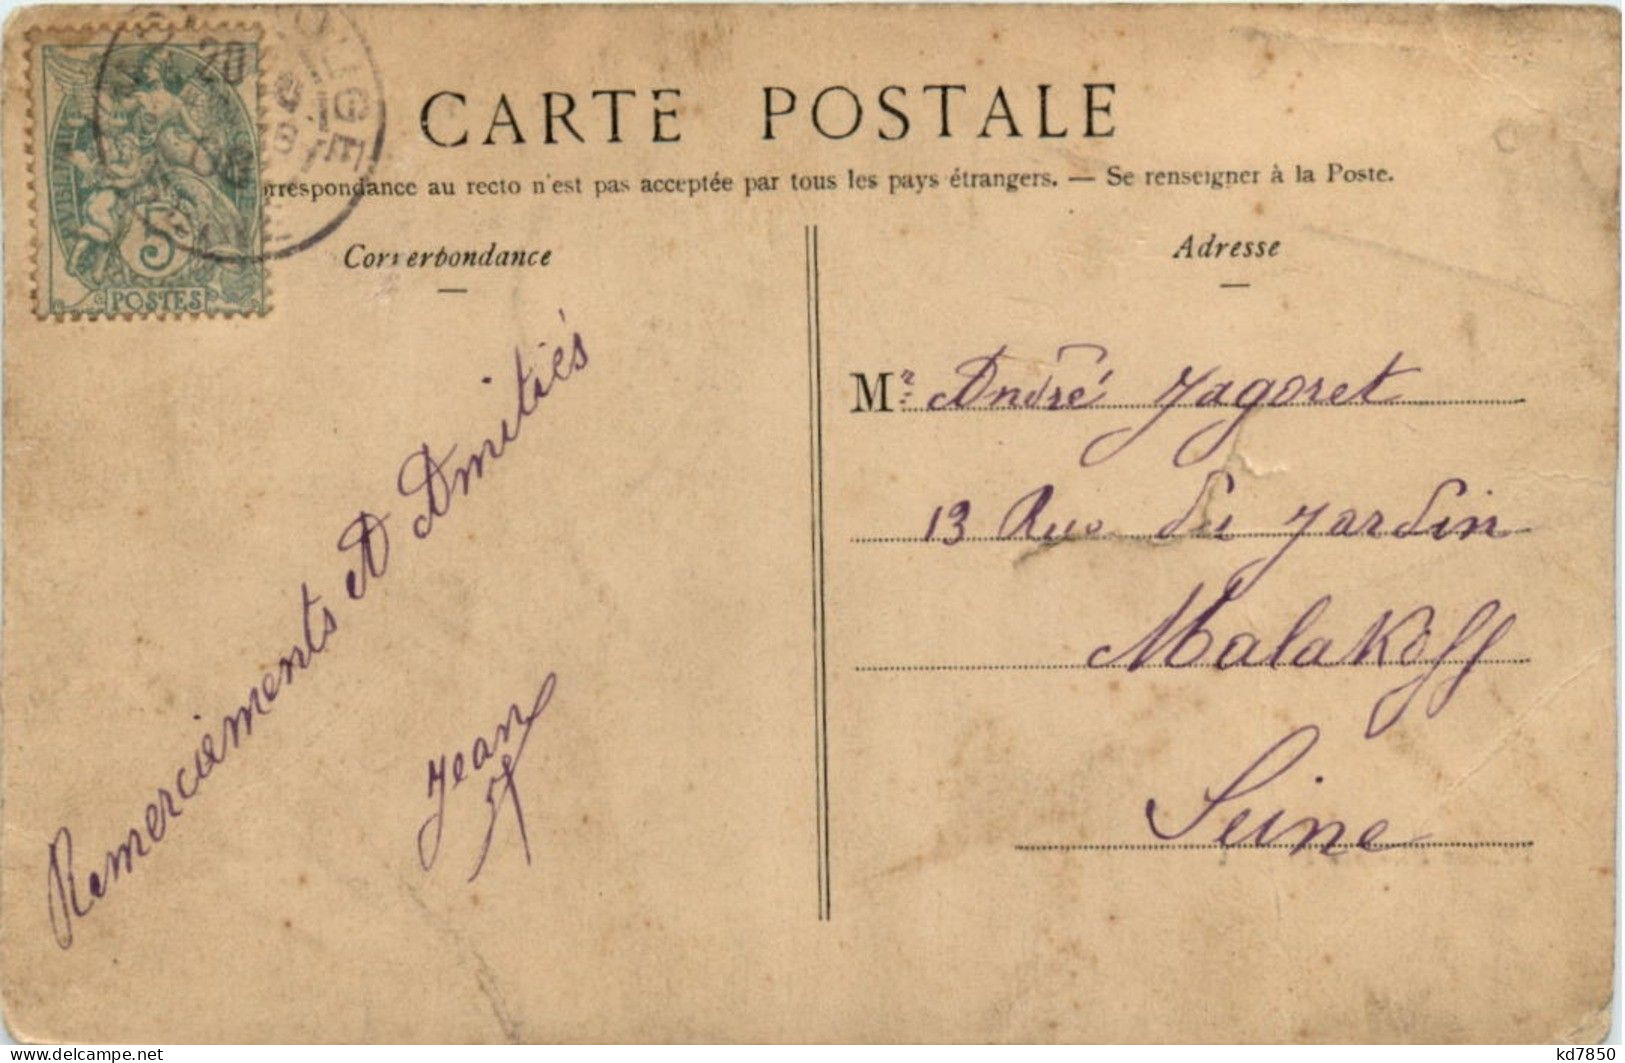 CARTE POSTALE
orrespondance au recto n'est pas acceptée par tous les pays étrangers. — Se renseigner à la Poste.
Correspondance
Adresse
5
POSTES
Remerciements et Amitiés
Jean
Mr André Jagoret
13 Rue du Jardin
Malakoff
Seine
kd7850